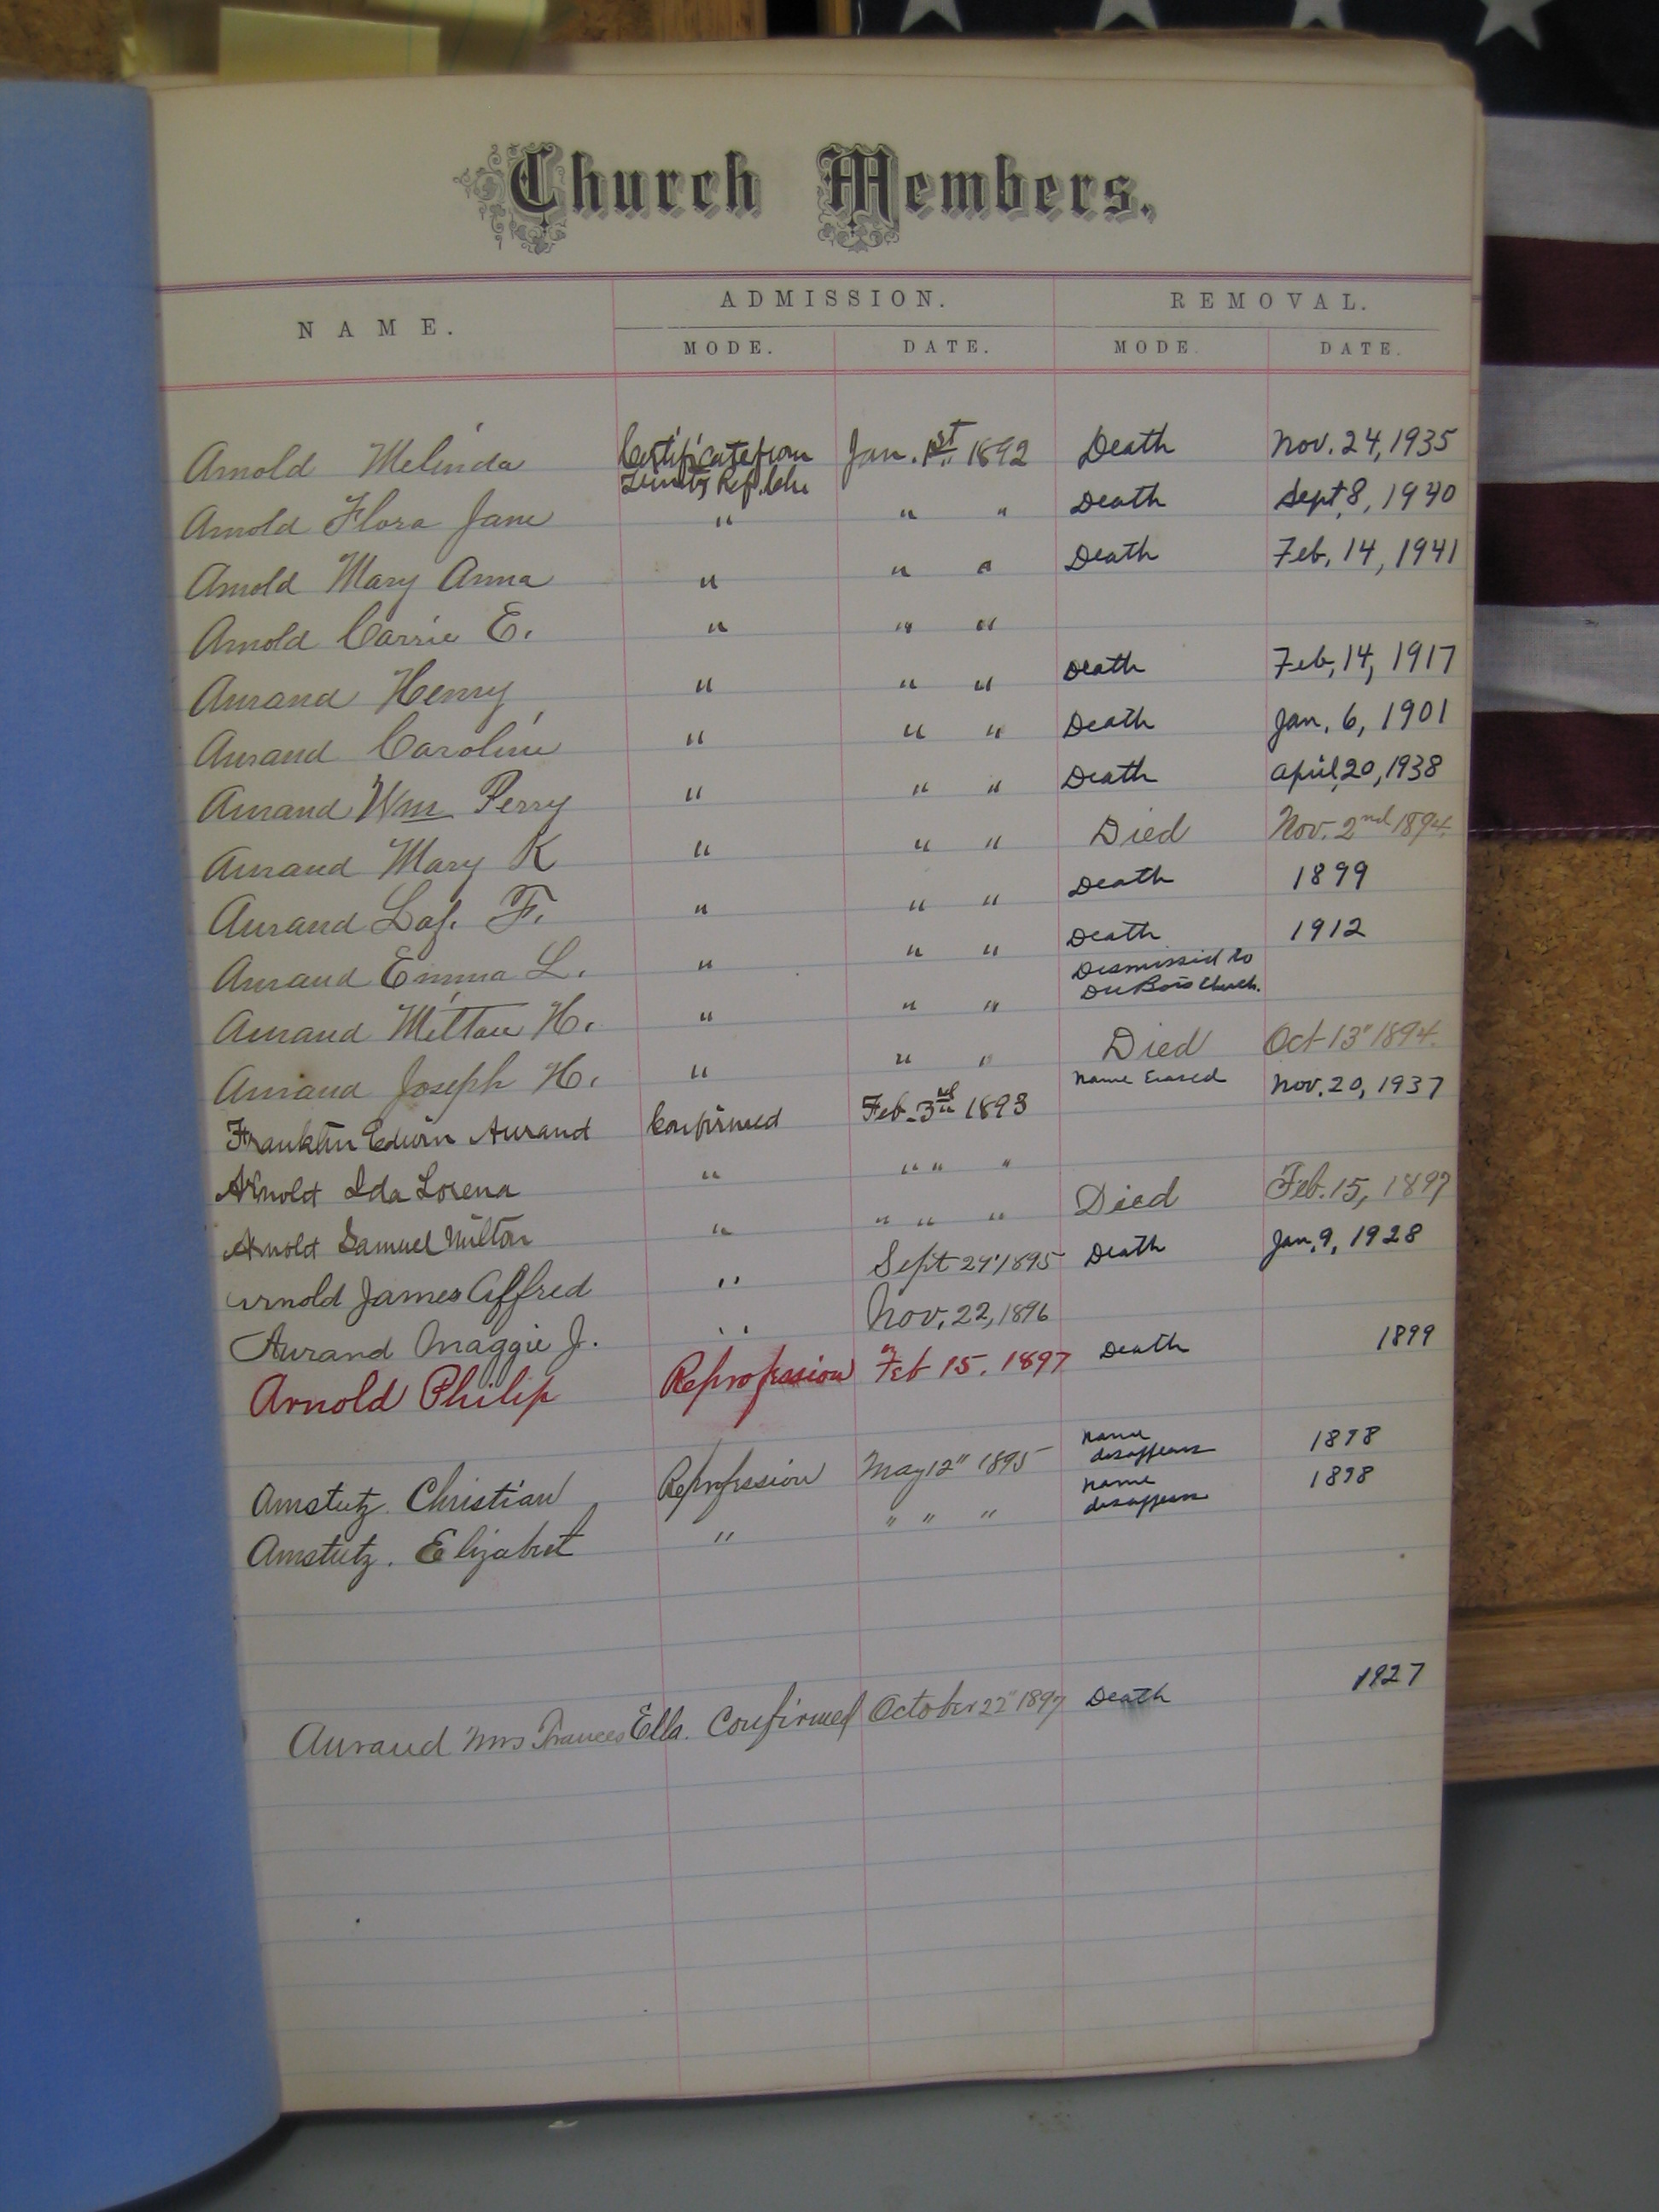 Church Members.
NAME. ADMISSION. REMOVAL.
MODE. DATE. MODE. DATE.
Arnold Melinda Certificate from Jan. 1st 1892 Death Nov. 24, 1935
Trinity Ref.
Arnold Flora Jane " " " Death Sept 8, 1940
Arnold Mary Anna " " " Death Feb. 14, 1941
Arnold Carrie E. " " "
Aurand Henry " " " Death Feb. 14, 1917
Aurand Caroline " " " Death Jan. 6, 1901
Aurand Wm Perry " " " Death April 20, 1938
Aurand Mary K " " " Died Nov. 2nd 1894.
Aurand Laf. F. " " " Death 1899
Aurand Emma L. " " " Death 1912
Aurand Milton H. " " " Dismissed to
Du Bois Church.
Aurand Joseph H. " " " Died Oct 13" 1894.
Franklin Edwin Aurand Confirmed Feb. 3rd 1893 Name Erased Nov. 20, 1937
Arnold Ida Lorena " " " "
Arnold Samuel Milton " " " " Died Feb. 15, 1897
Arnold James Alfred " Sept 29" 1895 Death Jan. 9, 1928
Aurand Maggie J. " Nov. 22, 1896
Arnold Philip Reprofession Feb 15. 1897 Death 1899
Amstutz. Christian Reprofession May 12" 1895 name
disappears 1898
Amstutz. Elizabet " " " " name
disappears 1898
Aurand Mrs Frances Ella. Confirmed October 22" 1897 Death 1927